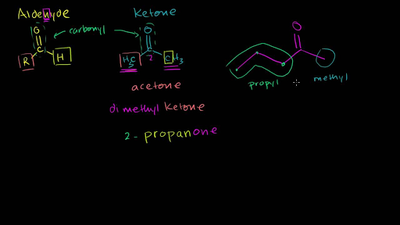 Aldehyde
Ketone
carbonyl
O
C
R
H
O
H3C
CH3
O
acetone
dimethyl ketone
2-propanone
propyl
methyl